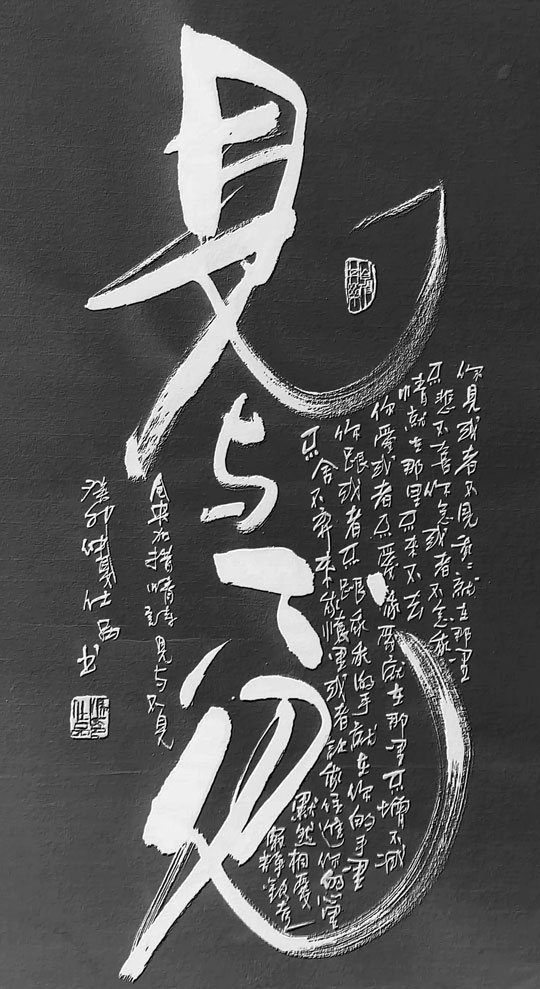 見与不見
你見或者不見我我就在那里
不悲不喜你念或者不念我
情就在那里不来不去
你爱或者不爱爱就在那里不增不减
你跟或者不跟我我的手就在你的手里
不舍不弃來我怀里或者让我住進你的心里
默然相爱
寂静歓喜
倉央加措情詩見与不見
癸卯仲夏仕书